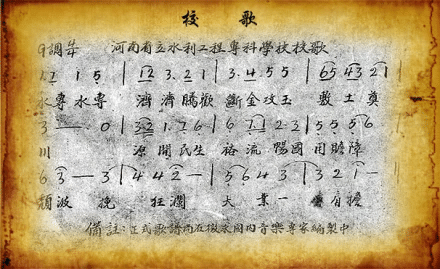 校 歌
9調 4/4 河南省立水利工程專科學校校歌
1.1 1 5 | 12 3.2 1 | 3.4 5 5 | 65 43 2 1 |
水專水專 濟濟腾歡 斷金攻玉 敷土奠
3 — — 0 | 32 1.7 6 | 6 7.1 2 3 | 5 5 5 6
川 源開民生 裕流 國用贍障
6 3 — 3 | 4 4 2 — | 5 6 4 3 | 3 2 1 —
頹波 挽狂瀾 大業一 肩擔
備註:正式歌譜尚在徵求國內音樂專家編製中